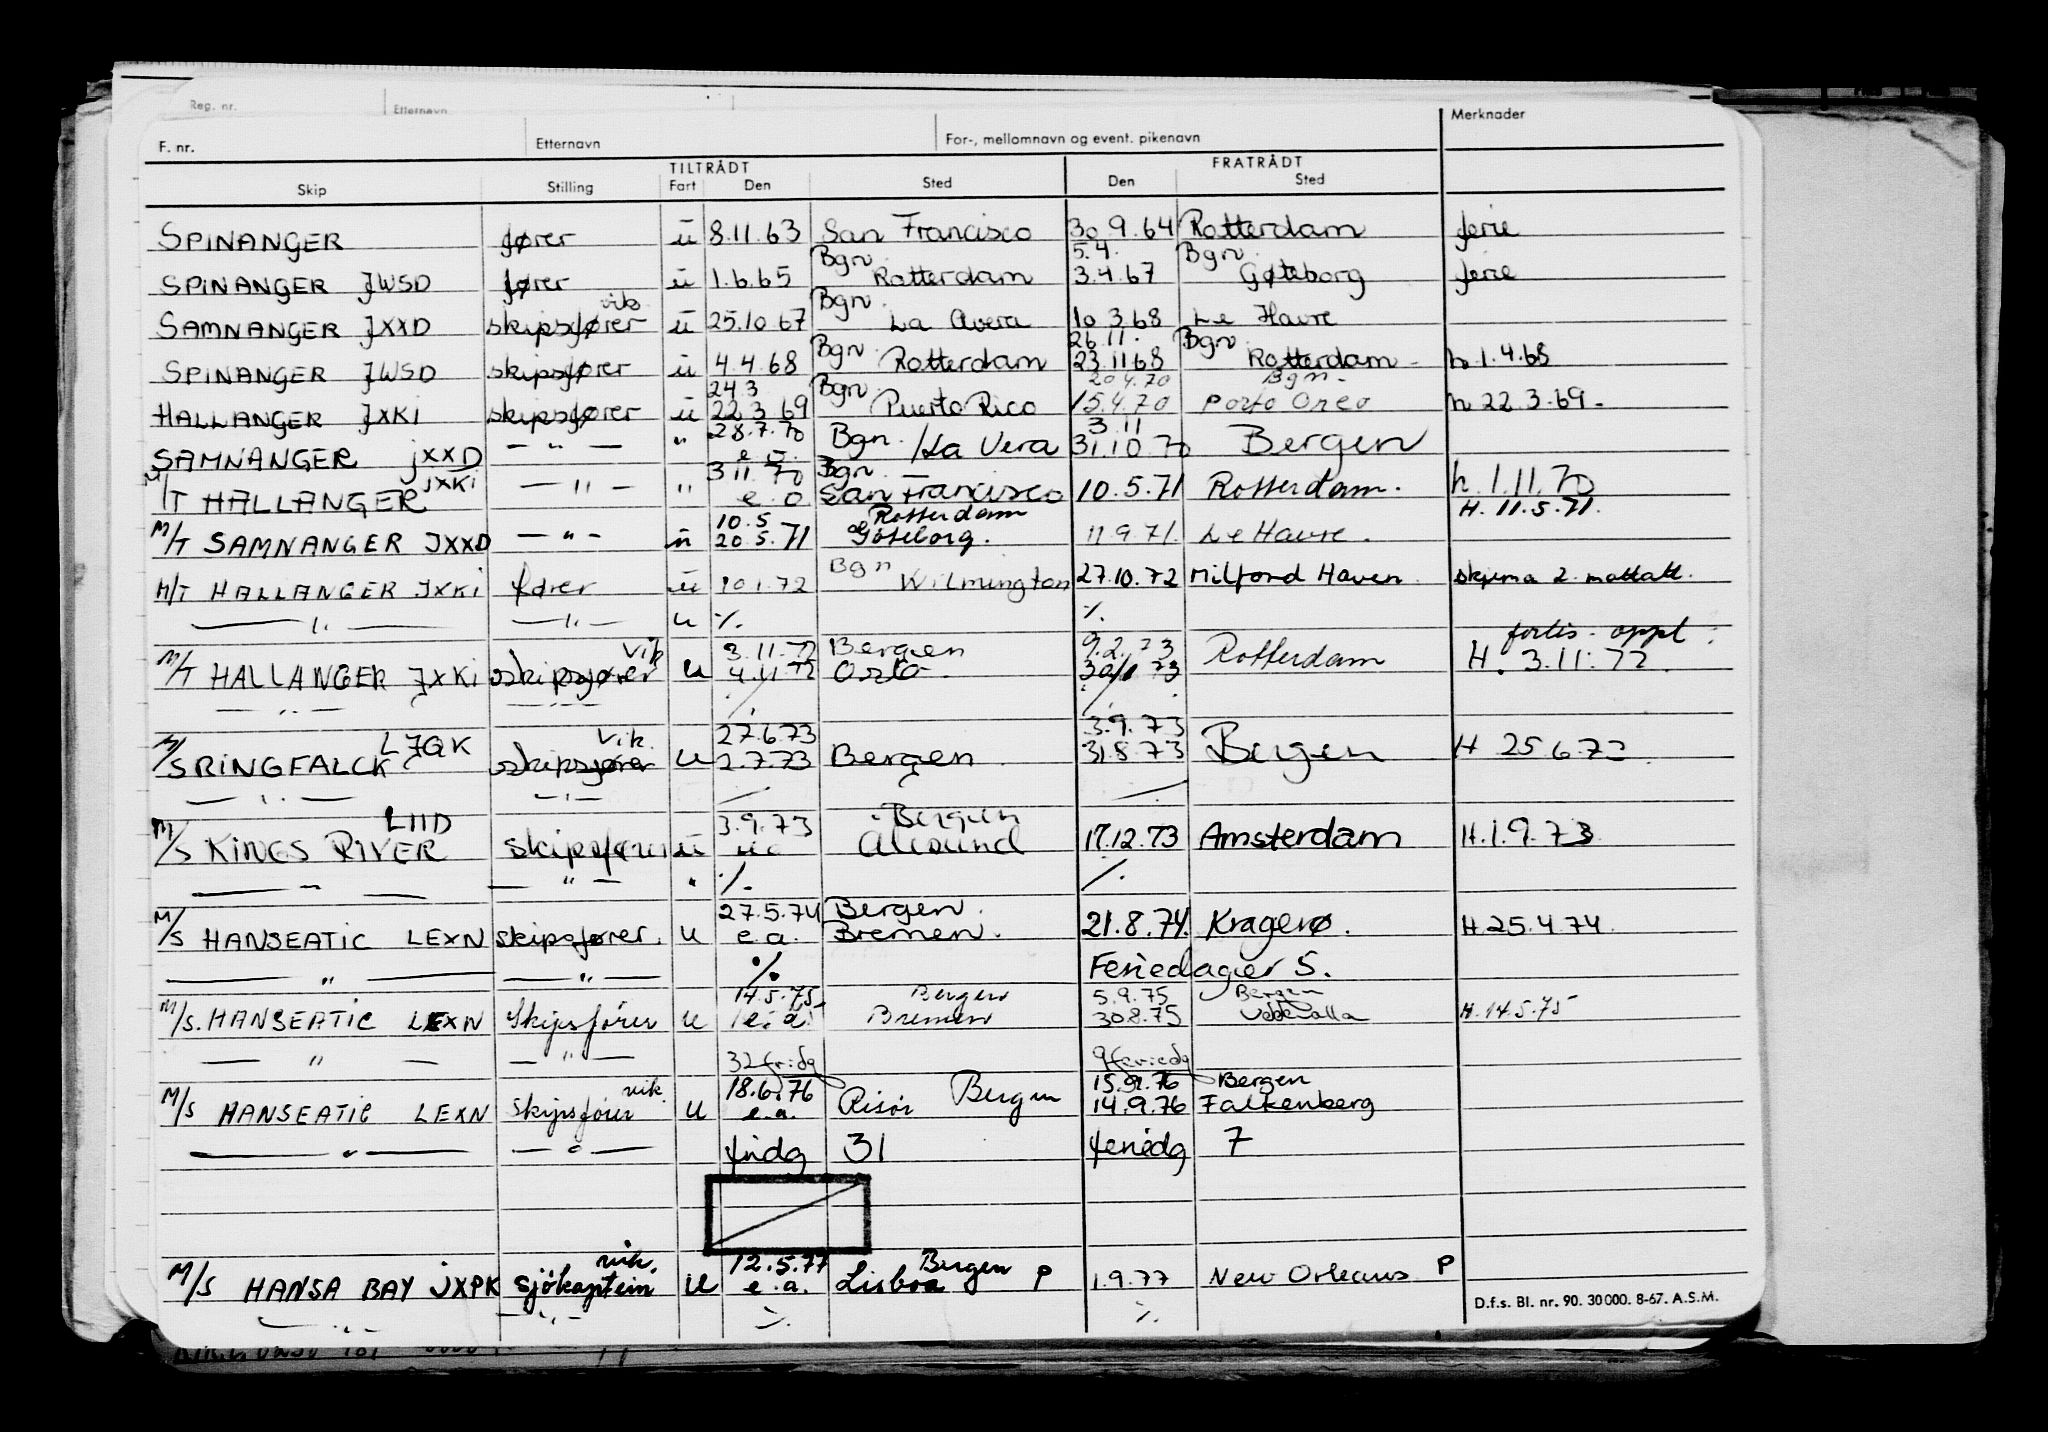 Reg. nr. Etternavn
F. nr. Etternavn For-, mellomnavn og event. pikenavn Merknader
TILTRÅDT FRATRÅDT
Skip Stilling Fart Den Sted Den Sted
SPINANGER fører ü 8.11.63 San Francisco 30 9.64 Rotterdam ferie
Bgn 5.4. Bgn
SPINANGER JWSD fører ü 1.6.65 Rotterdam 3.4.67 Gøteborg ferie
vik Bgn
SAMNANGER JXXD skipsfører ü 25.10 67 La Avera 10 3.68 Le Havre
Bgn 26.11. Bgn
SPINANGER JWSD skipsfører ü 4.4.68 Rotterdam 23.11 68 Rotterdam h 1.4.68
24.3 Bgn 20 4.70 Bgn.
HALLANGER JXKI skipsfører ü 22.3.69 Puerto Rico 15.4.70 Porto h 22.3.69.
28.7.70 3.11
SAMNANGER JXXD — " — " e o. Bgn. /La Vera 31.10.70 Bergen
JXKI 3 11. 70 Bgn
M/T HALLANGER — " — " e. o San Francisco 10.5.71 Rotterdam. h. 1.11.70
10.5 Rotterdam H. 11.5.71.
M/T SAMNANGER JXXD — " — ü 20.5.71 Göteborg. 11 9.71. Le Havre.
Bgn
M/T HALLANGER JXKI fører ü 10 1.72 Wilmington 27.10.72 Milford Haven. skjema 2 mottatt.
— " — — " — u ⁒ ⁒
vik 3.11.72 Bergen 9.2.73 fortis. oppt.
M/T HALLANGER JXKI skipsfører u 4.11 72 Oslo 73 Rotterdam H. 3.11.72.
— " — — " — ⁒ ⁒
LJGK vik. 27.6.73 3.9.73
M/S RINGFALCK skipsfører u 2.7.73 Bergen 31.8.73 Bergen H 25.6.73
— " — — " — / /
LIID 3.9.73 Bergen
M/S KINGS RIVER skipsfører ü Ålesund 17.12.73 Amsterdam H.1.9.73
— " — — " — " ⁒ ⁒
27.5.74 Bergen.
M/S HANSEATIC LEXN skipsfører. u e.a. Bremen. 21.8.74. Kragerø. H.25.4.74.
— " — — " — ⁒ Feriedager 5.
14.5.75 Bergen 5.9.75 Bergen
M/S. HANSEATIC LEXN Skipsfører u e.a. Bremen 30.8.75 Uddevalla H.14.5.75
— " — — " — 32 fridg 9 feriedg
vik. 18.6.76 Bergen 15.9.76 Bergen
M/S HANSEATIC LEXN Skipsfører u e.a. Risør 14.9.76 Falkenberg
— " — — " — fridg 31 feriedg 7
vik. 12.5.77 Bergen
M/S HANSA BAY JXPK Sjökaptein u e.a. Lisboa P 1.9.77 New Orleans P
— " — — " — ⁒ ⁒
D.f.s. Bl. nr. 90. 30 000. 8-67. A.S.M.